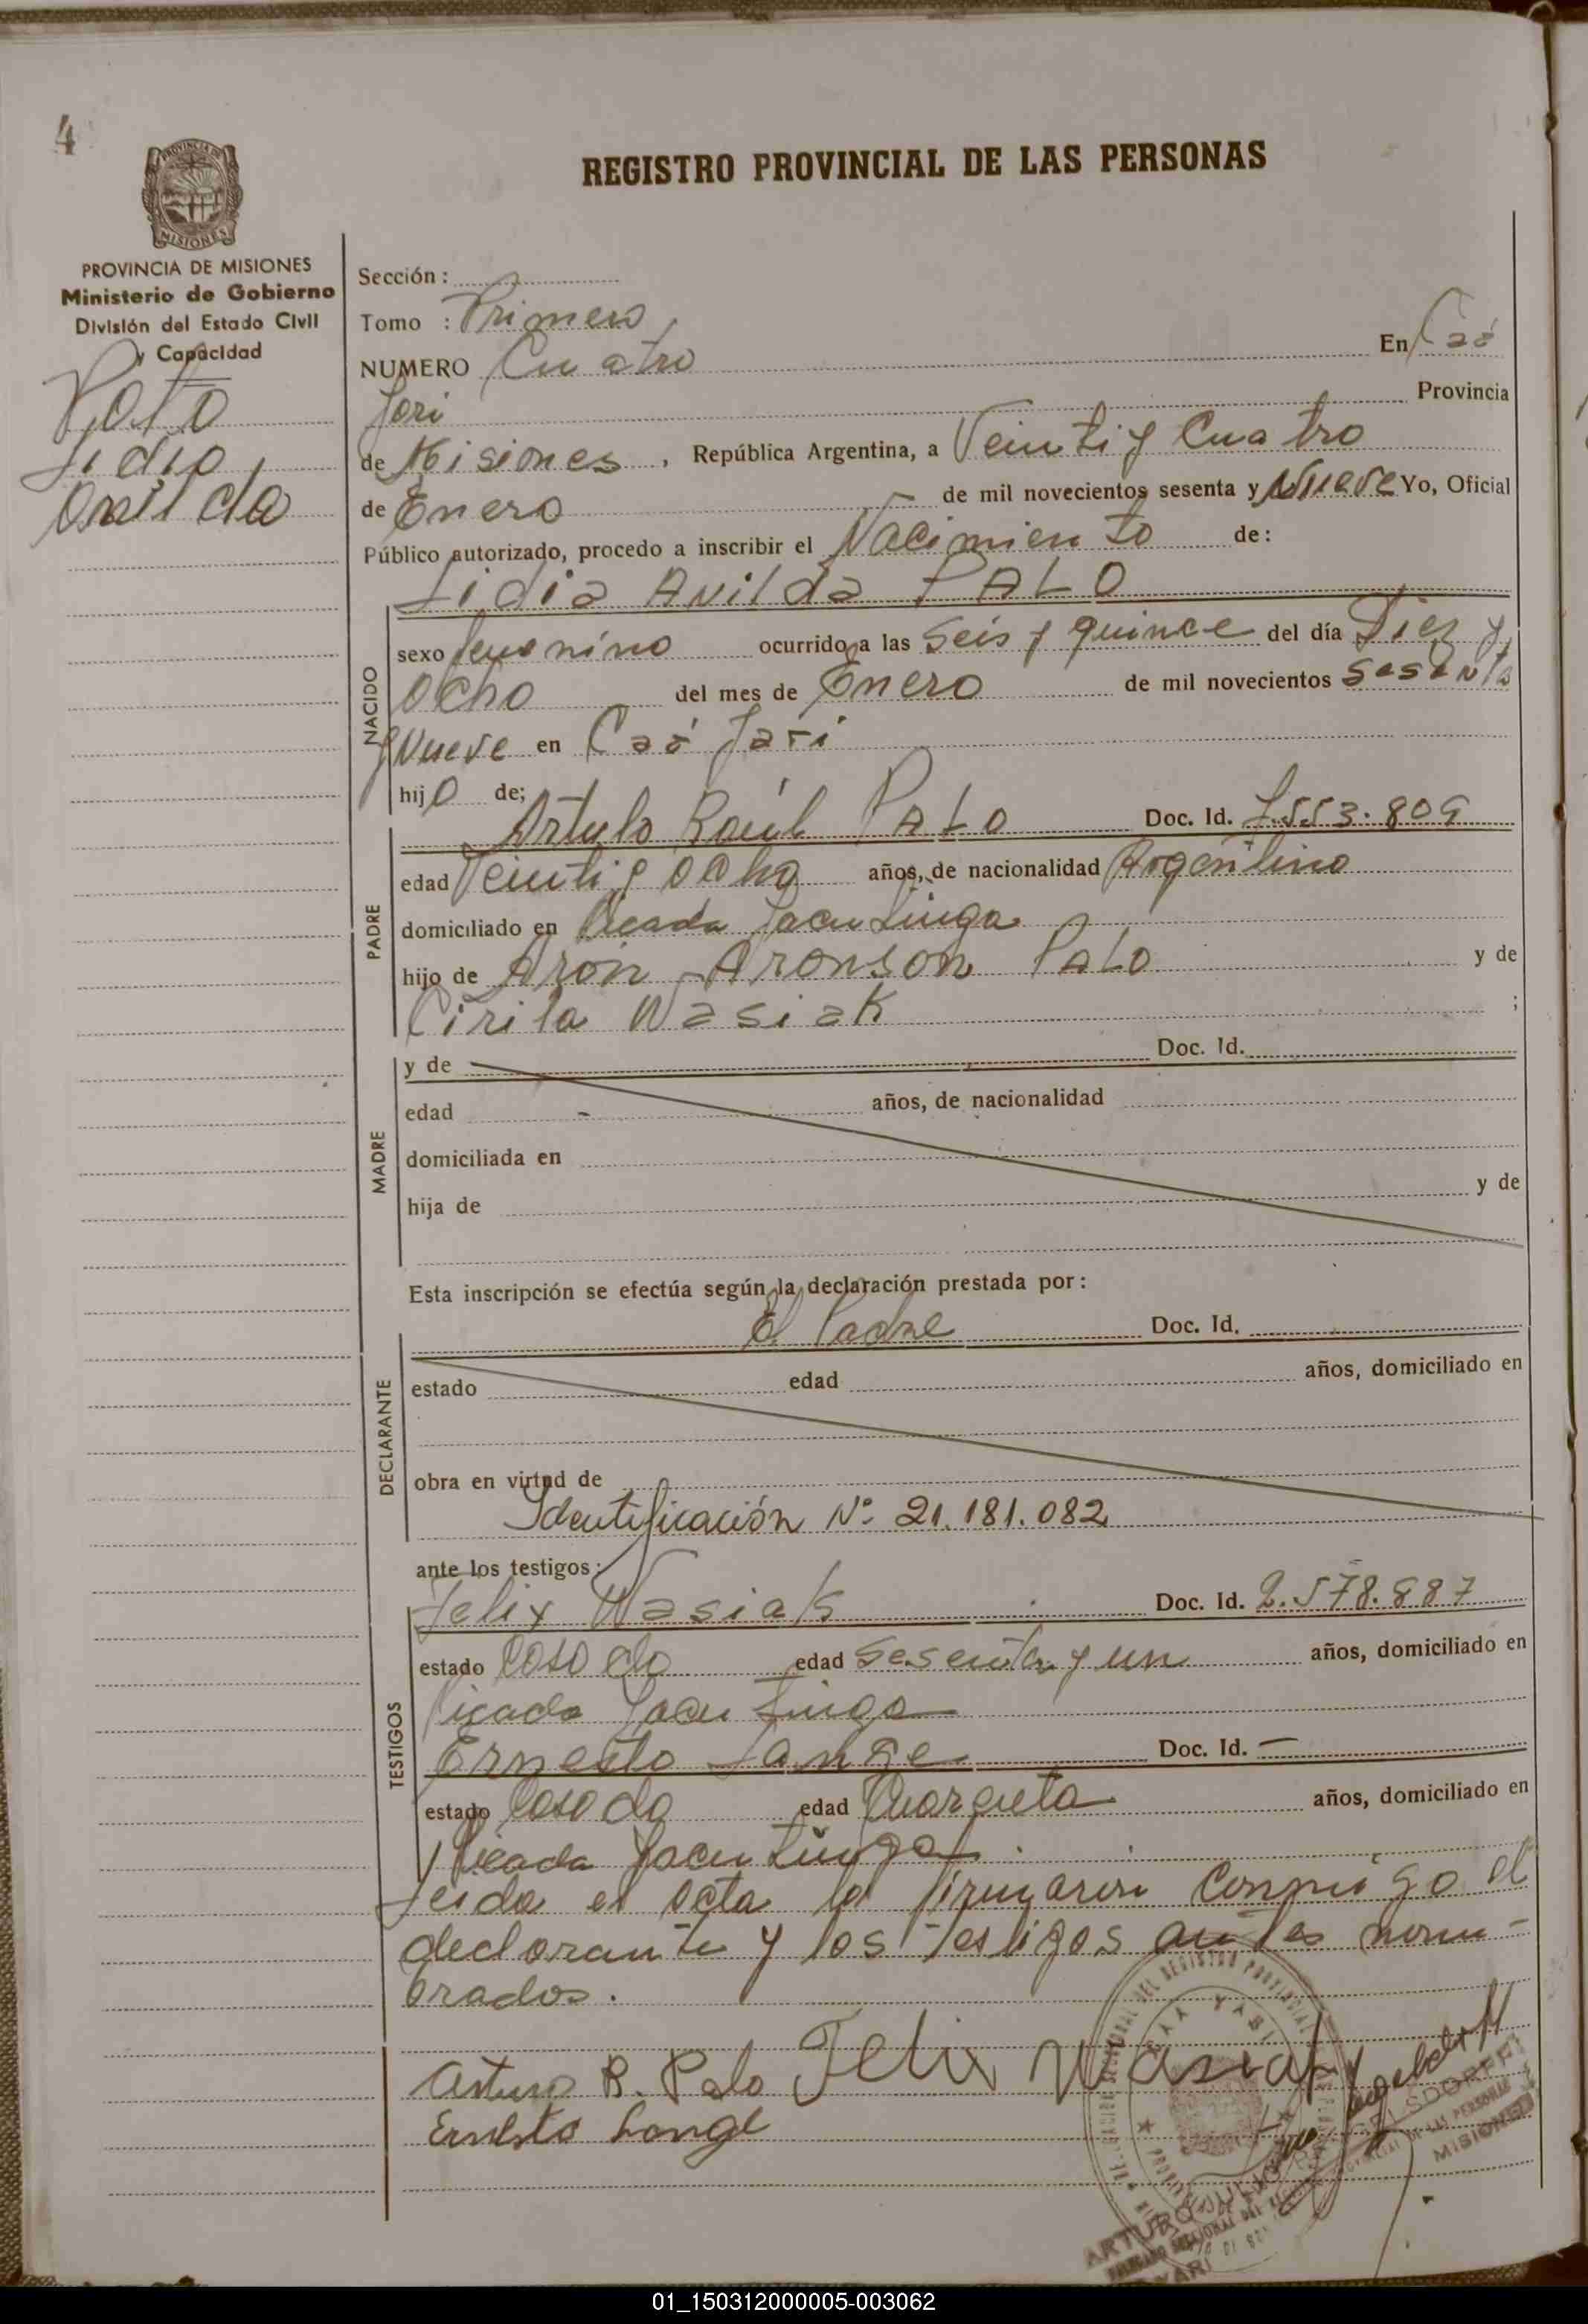 4
PROVINCIA DE
MISIONES
REGISTRO PROVINCIAL DE LAS PERSONAS
PROVINCIA DE MISIONES
Ministerio de Gobierno
División del Estado Civil
y Capacidad
Palo
Lidia
Anilda
Sección :
Tomo : Primero
NUMERO Cuatro En Caá
Yari Provincia
de Misiones , República Argentina, a Veinti y Cuatro
de Enero de mil novecientos sesenta y Nueve Yo, Oficial
Público autorizado, procedo a inscribir el Nacimiento de:
Lidia Anilda PALO
NACIDO
sexo femenino ocurrido a las Seis y quince del día Diez y
Ocho del mes de Enero de mil novecientos sesenta
y Nueve en Caá Yarí
hijo de;
Arturo Raúl PALO Doc. Id. 7.553.809
PADRE
edad Veinti y ocho años, de nacionalidad Argentino
domiciliado en Picada Yacutinga
hijo de Arón Aronson Palo y de
Cirila Wasiak ;
MADRE
y de Doc. Id.
edad - años, de nacionalidad
domiciliada en
hija de y de
Esta inscripción se efectúa según la declaración prestada por:
El Padre Doc. Id.
DECLARANTE
estado edad años, domiciliado en
obra en virtud de
Identificación Nº 21.181.082
ante los testigos:
Felix Wasiak Doc. Id. 2.578.887
TESTIGOS
estado Casado edad Sesenta y un años, domiciliado en
Picada Yacutinga
Ernesto Lange Doc. Id. —
estado Casado edad Cuarenta años, domiciliado en
Picada Yacutinga.
Leida el acta la firmaron conmigo el
declarante y los testigos antes nom-
brados.
Arturo R. Palo Felix Wasiak
Ernesto Lange
CAA YARI
MISIONES
01_150312000005-003062